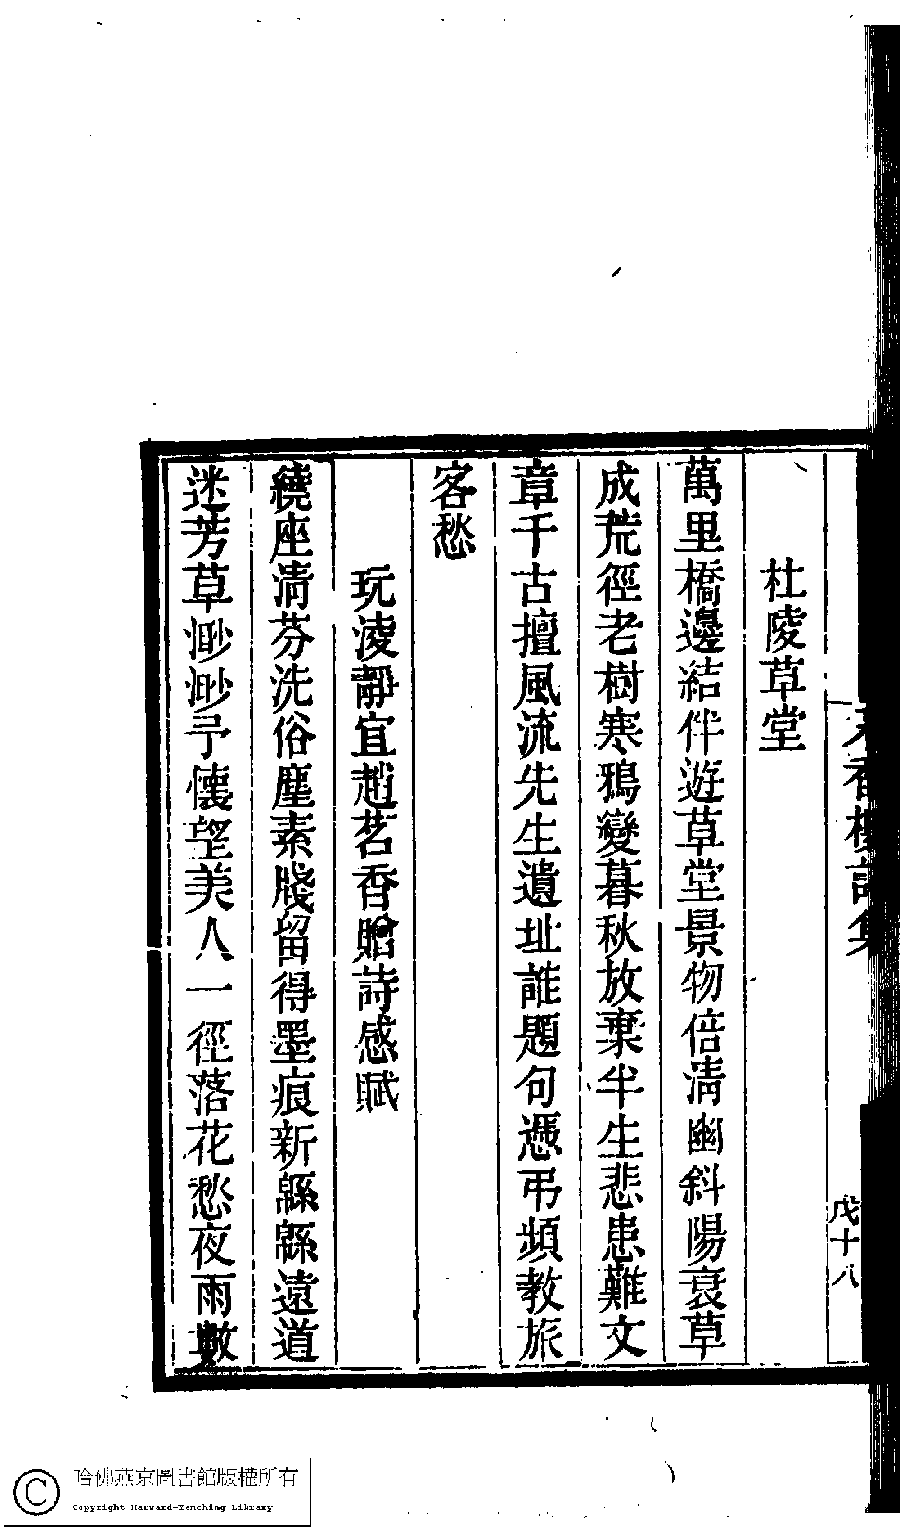 香樓詩集
戊十八
杜陵草堂
萬里橋邊結伴遊草堂景物倍清幽斜陽衰草
成荒徑老樹寒鴉變暮秋放棄半生悲患難文
章千古擅風流先生遺址誰題句憑弔頻教旅
客愁
玩淩靜宜趙茗香贈詩感賦
繞座清芬洗俗塵素牋留得墨痕新緜緜遠道
迷芳草渺渺予懷望美人一徑落花愁夜雨數
哈佛燕京圖書館版權所有
Copyright Harvard-Yenching Library